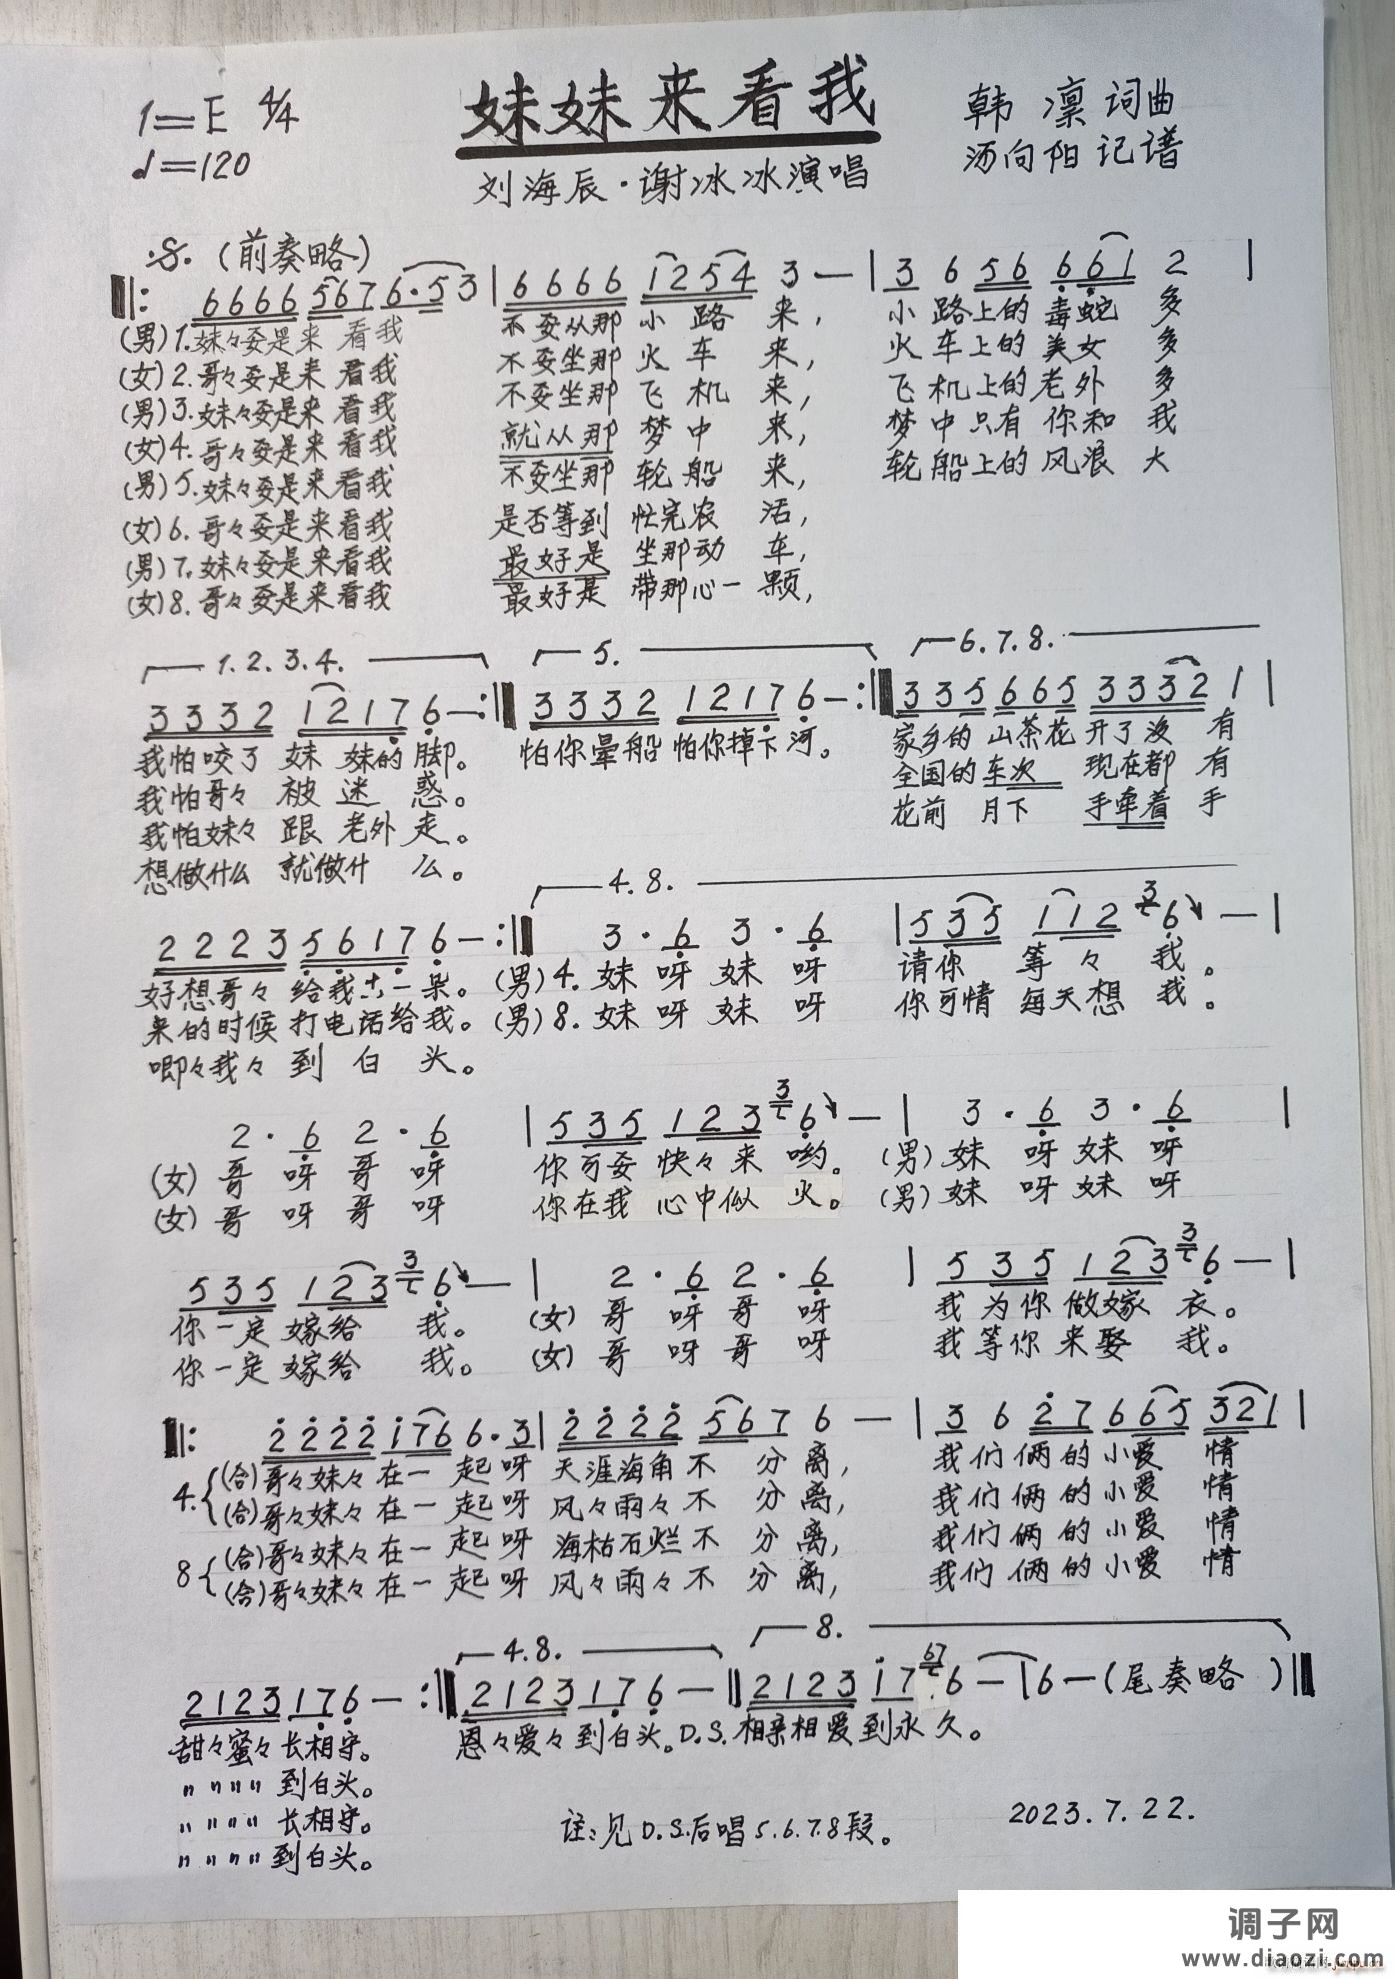 妹妹来看我
1=E 4/4
♩=120
韩凛 词曲
汤向阳 记谱
刘海辰·谢冰冰演唱
(前奏略)
6666 5676·53 | 6666 1254 3— | 3 6 56 661 2 |
(男)1.妹々要是来看我 不要从那小路来, 小路上的毒蛇多
(女)2.哥々要是来看我 不要坐那火车来, 火车上的美女多
(男)3.妹々要是来看我 不要坐那飞机来, 飞机上的老外多
(女)4.哥々要是来看我 就从那梦中来, 梦中只有你和我
(男)5.妹々要是来看我 不要坐那轮船来, 轮船上的风浪大
(女)6.哥々要是来看我 是否等到忙完农活,
(男)7.妹々要是来看我 最好是坐那动车,
(女)8.哥々要是来看我 最好是带那心一颗,
1.2.3.4. 5. 6.7.8.
3332 1217 6—:‖ 3332 1217 6—:‖ 335 665 3332 1 |
我怕咬了妹妹的脚。 怕你晕船怕你掉下河。 家乡的山茶花开了没有
我怕哥々被迷惑。 全国的车次现在都有
我怕妹々跟老外走。 花前月下手牵着手
想做什么就做什么。
4.8.
2223 5617 6—:‖ 3·6 3·6 | 535 112 3 6— |
好想哥々给我六一朵。 (男)4.妹呀妹呀 请你等々我。
来的时候打电话给我。 (男)8.妹呀妹呀 你可情每天想我。
唧々我々到白头。
2·6 2·6 | 535 123 3 6— | 3·6 3·6 |
(女)哥呀哥呀 你可要快々来哟。 (男)妹呀妹呀
(女)哥呀哥呀 你在我心中似火。 (男)妹呀妹呀
535 123 3 6— | 2·6 2·6 | 535 123 3 6— |
你一定嫁给我。 (女)哥呀哥呀 我为你做嫁衣。
你一定嫁给我。 (女)哥呀哥呀 我等你来娶我。
‖: 2222 176 6·3 | 2222 567 6— | 3 6 27 665 321 |
4.(合)哥々妹々在一起呀 天涯海角不分离, 我们俩的小爱情
(合)哥々妹々在一起呀 风々雨々不分离, 我们俩的小爱情
8(合)哥々妹々在一起呀 海枯石烂不分离, 我们俩的小爱情
(合)哥々妹々在一起呀 风々雨々不分离, 我们俩的小爱情
4.8. 8.
2123 176—:‖ 2123 176—‖ 2123 17 67 6—|6—(尾奏略)‖
甜々蜜々长相守。 恩々爱々到白头。D.S.相亲相爱到永久。
〃〃〃〃到白头。
〃〃〃〃长相守。
〃〃〃〃到白头。
注:见D.S.后唱5.6.7.8段。
2023.7.22.
调子网
www.diaozi.com